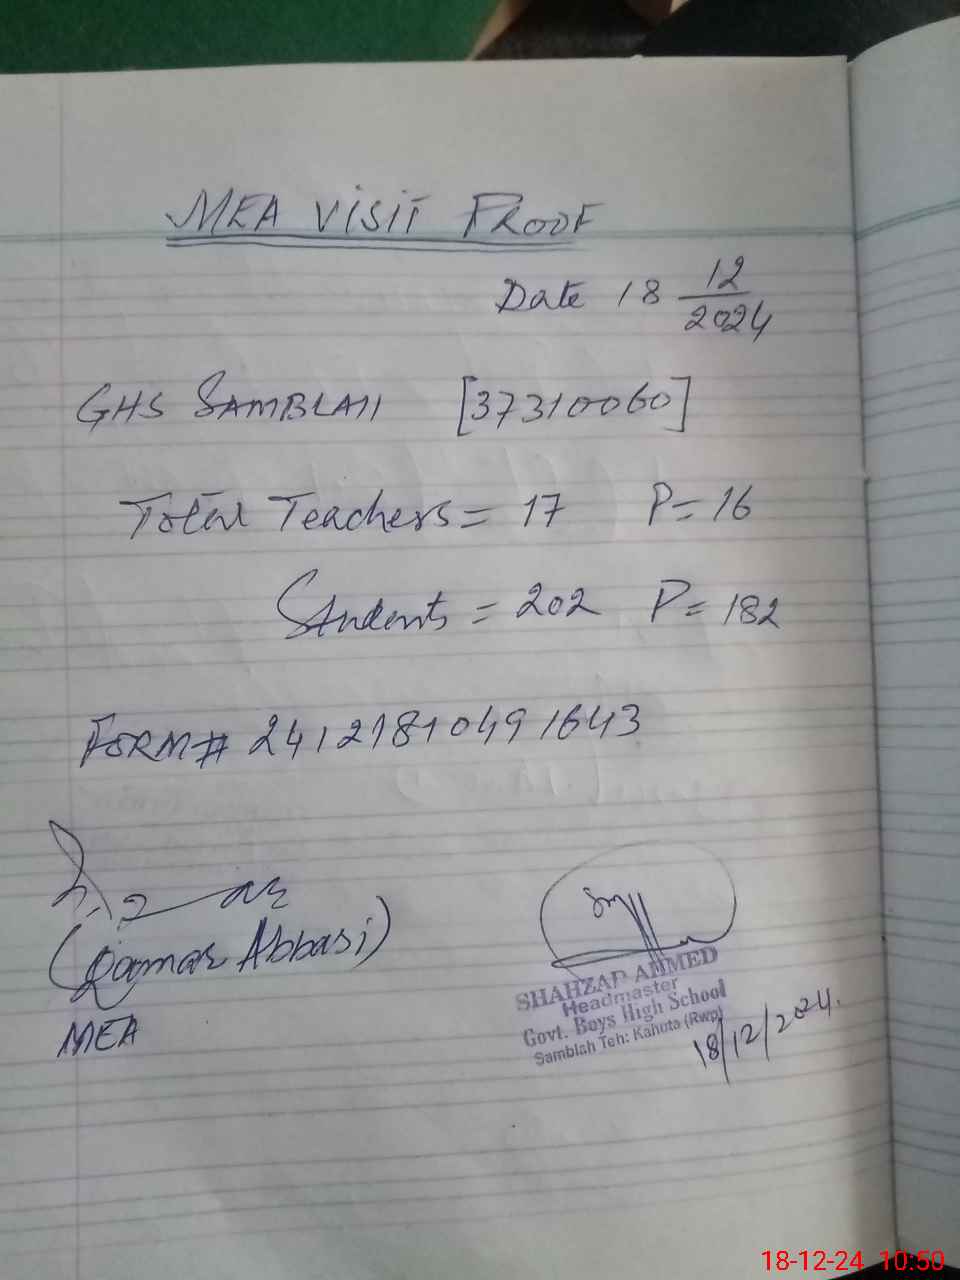 MEA VISIT PROOF
Date 18 12/2024
GHS SAMBLAH [37310060]
Total Teachers = 17 P = 16
Students = 202 P = 182
FORM# 2412181049 1643
(Qamar Abbasi)
MEA
SHAHZAD AHMED
Headmaster
Govt. Boys High School
Samblah Teh: Kahuta (Rwp)
18/12/2024.
18-12-24 10:50